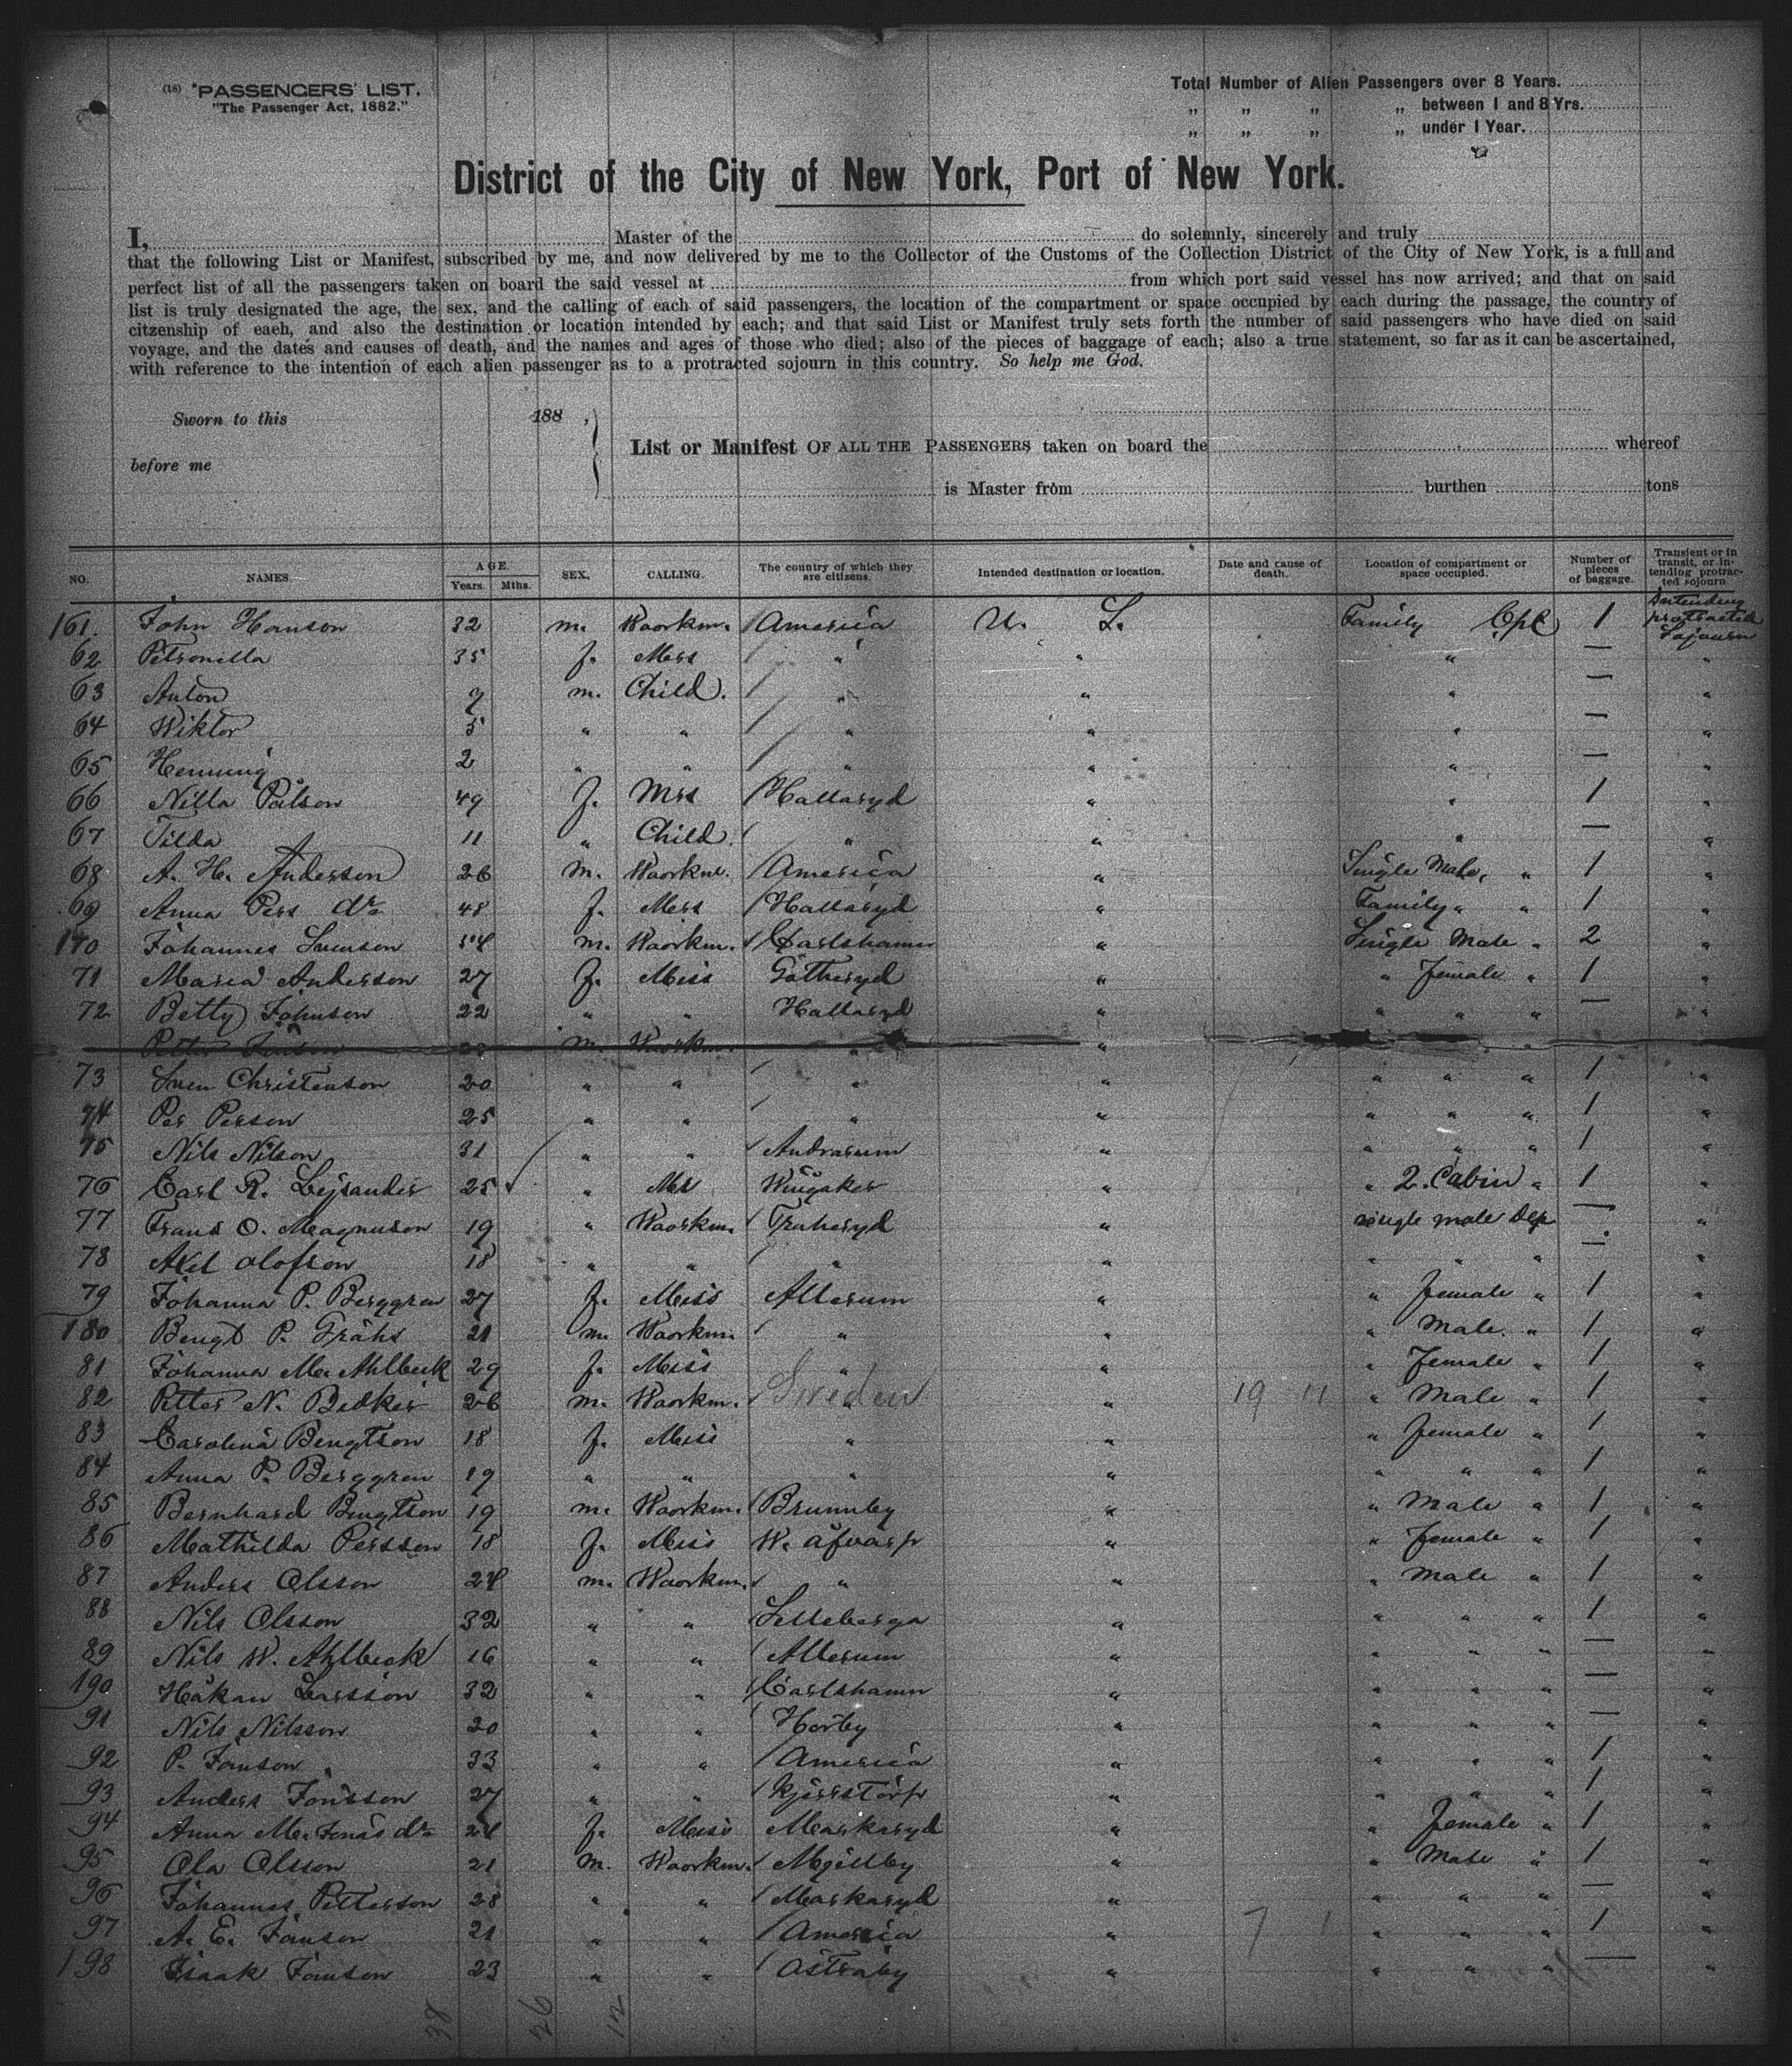 (18) "PASSENGERS' LIST.
"The Passenger Act, 1882."
Total Number of Alien Passengers over 8 Years.
" " " " between 1 and 8 Yrs.
" " " " under 1 Year.
District of the City of New York, Port of New York.
I, Master of the do solemnly, sincerely and truly
that the following List or Manifest, subscribed by me, and now delivered by me to the Collector of the Customs of the Collection District of the City of New York, is a full and
perfect list of all the passengers taken on board the said vessel at from which port said vessel has now arrived; and that on said
list is truly designated the age, the sex, and the calling of each of said passengers, the location of the compartment or space occupied by each during the passage, the country of
citzenship of eaeh, and also the destination or location intended by each; and that said List or Manifest truly sets forth the number of said passengers who have died on said
voyage, and the dates and causes of death, and the names and ages of those who died; also of the pieces of baggage of each; also a true statement, so far as it can be ascertained,
with reference to the intention of each alien passenger as to a protracted sojourn in this country. So help me God.
Sworn to this 188 ,
List or Manifest OF ALL THE PASSENGERS taken on board the whereof
before me
is Master from burthen tons
NO. NAMES. AGE. Years. Mths. SEX. CALLING. The country of which they are citizens. Intended destination or location. Date and cause of death. Location of compartment or space occupied. Number of pieces of baggage. Transient or in transit, or intending protracted sojourn
161. John Hanson 32 m. Woorkm. America U. S. Family Cpt 1 Intending protracted Sojourn
62 Petronilla 35 f. Mrss " " " — "
63 Anton 9 m. Child. " " " — "
64 Wiktor 5 " " " " " — "
65 Henning 2 " " " " " — "
66 Nilla Pålson 49 f. Mrs Hallaryd " " 1 "
67 Tilda 11 " Child. " " " — "
68 A. H. Anderson 26 m. Woorkm. America " Single Male, " 1 "
69 Anna Pers dr 48 f. Mrss Hallaryd " Family " " 1 "
170 Johannes Svenson 54 m. Woorkm. Carlshamn " Single Male " 2 "
71 Maria Anderson 27 f. Miss Götheryd " " female " 1 "
72 Betty Johnson 22 " " Hallaryd " " " " — "
Petter Jönson m. Woorkm. " "
73 Sven Christenson 20 " " " " " " " 1 "
74 Per Person 25 " " " " " " " 1 "
75 Nils Nilson 31 " " Andrarum " " " " 1 "
76 Carl R. Lejrander 25 " Mr Wingaker " " 2. Cabin " 1 "
77 Frans O. Magnuson 19 " Woorkm. Traheryd " single male Dep — "
78 Axel Olofson 18 " " " " " " " — "
79 Johanna P. Berggren 27 f. Miss Allerum " " female " 1 "
180 Bengt P. Gråhs 21 m. Woorkm. " " " Male. " 1 "
81 Johanna M. Ahlbeck 29 f. Miss " " " female " 1 "
82 Petter N. Bedker 26 m. Woorkm. " Sweden " 19 11 " Male " 1 "
83 Carolina Bengtson 18 f. Miss " " " female " 1 "
84 Anna P. Berggren 19 " " " " " " " 1 "
85 Bernhard Bengtson 19 m. Woorkm. Brunnby " " Male " 1 "
86 Mathilda Persson 18 f. Miss W. Åfvarp " " female " 1 "
87 Anders Olsson 24 m. Woorkm. " " " Male " 1 "
88 Nils Olsson 32 " " Silleberga " " " " 1 "
89 Nils W. Ahlbeck 16 " " Allerum " " " " — "
190 Håkan Larsson 32 " " Carlshamn " " " " — "
91 Nils Nilsson 20 " " Hörby " " " " — "
92 P. Jönson 33 " " America " " " " 1 "
93 Anders Jönsson 27 " " Kjärrstorp " " " " 1 "
94 Anna M. Jonas dr 24 f. Miss Markaryd " " female " 1 "
95 Ola Olsson 21 m. Woorkm. Mjällby " " Male " 1 "
96 Johannes Petterson 28 " " Markaryd " " " " — "
97 A. E. Jonson 21 " " America " 7 1 " " " 1 "
198 Isaak Jonson 23 " " Östraby " " " " — "
38 26 12